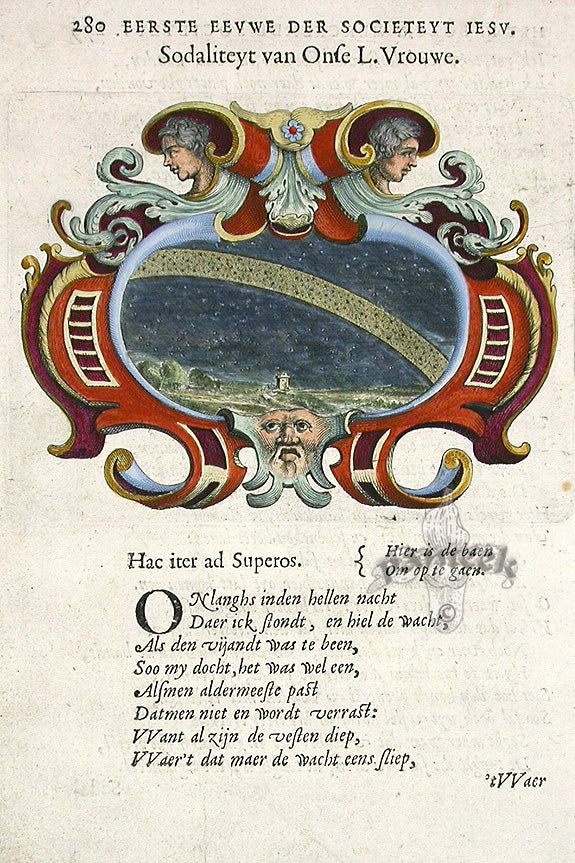 280 EERSTE EEVWE DER SOCIETEYT IESV.
Sodaliteyt van Onſe L. Vrouwe.
Hac iter ad Superos.
{ Hier is de baen
Om op te gaen.
ONlanghs inden hellen nacht
Daer ick ſtondt, en hiel de wacht,
Als den vijandt was te been,
Soo my docht, het was wel een,
Alſmen aldermeeſte paſt
Datmen niet en wordt verraſt:
VVant al zijn de veſten diep,
VVaer't dat maer de wacht eens ſliep,
'tVVaer